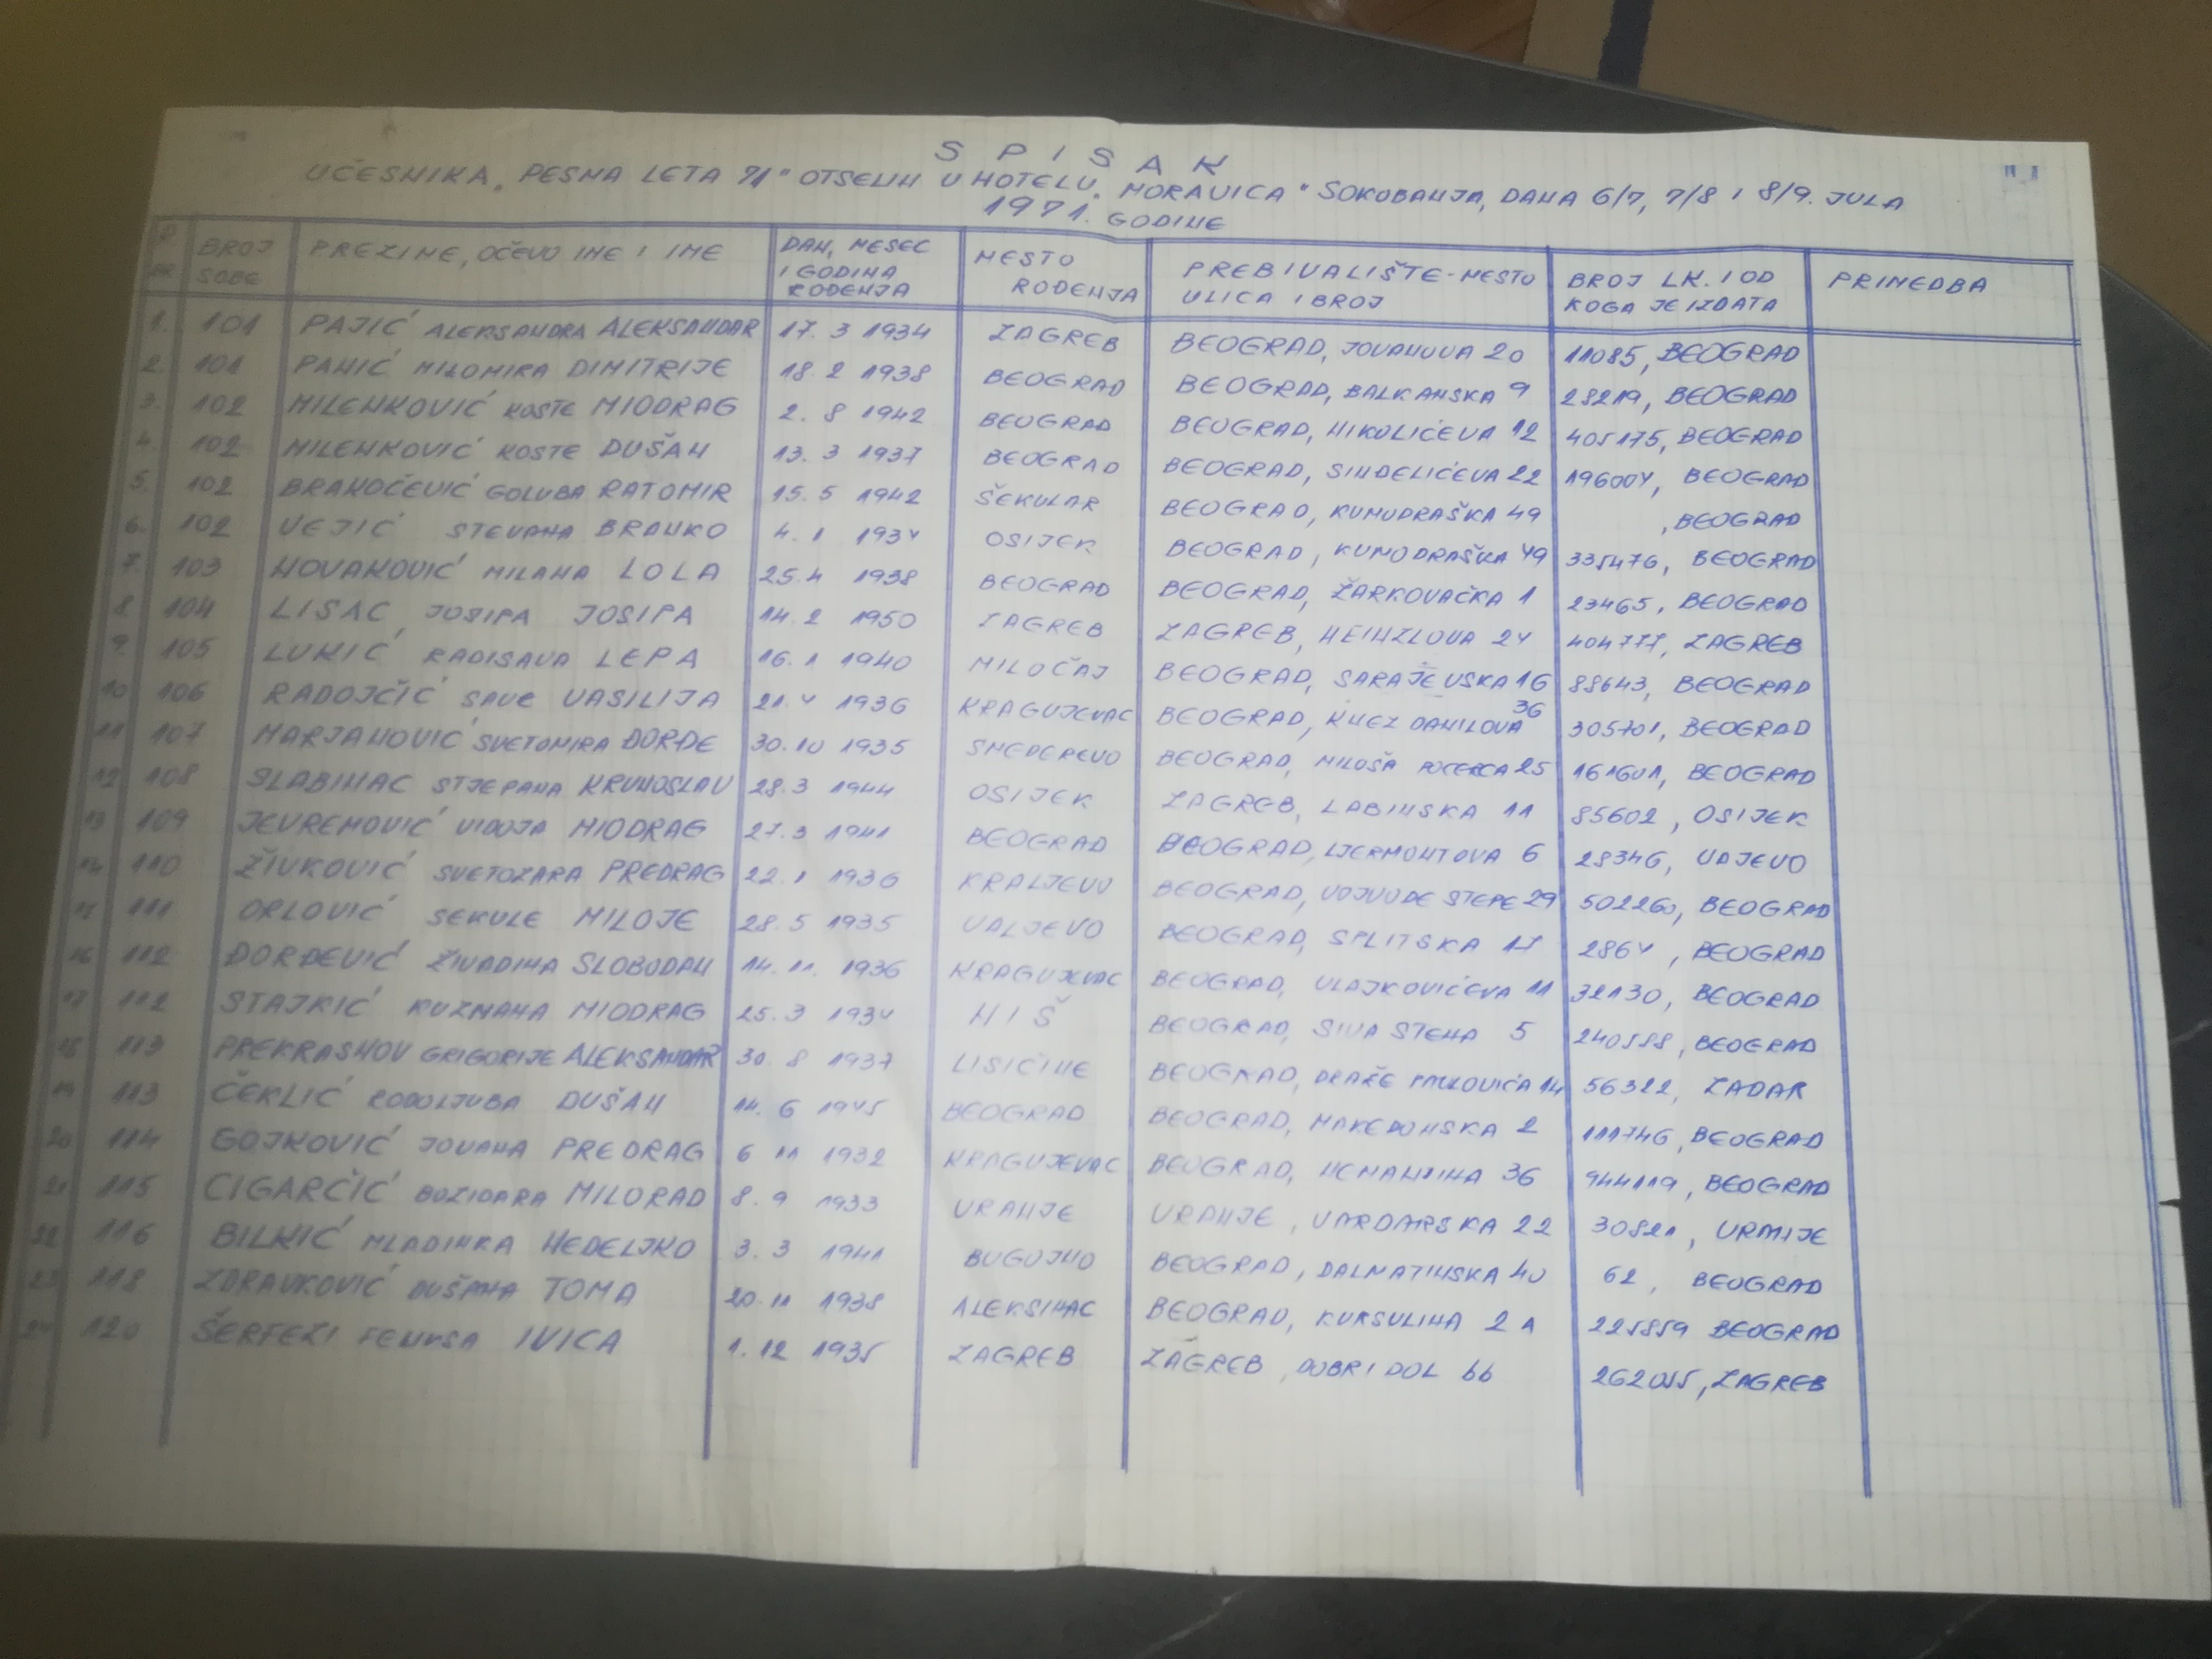 SPISAK
UČESNIKA "PESMA LETA 71" OTSELIH U HOTELU "MORAVICA" SOKOBANJA, DANA 6/7, 7/8 I 8/9. JULA
1971. GODINE
BR. BROJ SOBE PREZIME, OČEVO IME I IME DAN, MESEC I GODINA ROĐENJA MESTO ROĐENJA PREBIVALIŠTE-MESTO ULICA I BROJ BROJ LK. I OD KOGA JE IZDATA PRIMEDBA
1. 101 PAJIĆ ALEKSANDRA ALEKSANDAR 17. 3 1934 ZAGREB BEOGRAD, JOVANOVA 20 11085, BEOGRAD
2. 101 PANIĆ MILOMIRA DIMITRIJE 18. 2 1938 BEOGRAD BEOGRAD, BALKANSKA 9 28219, BEOGRAD
3. 102 MILENKOVIĆ KOSTE MIODRAG 2. 8 1942 BEOGRAD BEOGRAD, NIKOLIĆEVA 12 405175, BEOGRAD
4. 102 MILENKOVIĆ KOSTE DUŠAN 13. 3 1937 BEOGRAD BEOGRAD, SINĐELIĆEVA 22 196004, BEOGRAD
5. 102 BRAKOČEVIĆ GOLUBA RATOMIR 15. 5 1942 ŠEKULAR BEOGRAD, KUMODRAŠKA 49 , BEOGRAD
6. 102 VEJIĆ STEVANA BRANKO 4. 1 1934 OSIJEK BEOGRAD, KUMODRAŠKA 49 335476, BEOGRAD
7. 103 NOVAKOVIĆ MILANA LOLA 25. 4 1938 BEOGRAD BEOGRAD, ŽARKOVAČKA 1 23465, BEOGRAD
8 104 LISAC JOSIPA JOSIPA 14. 2 1950 ZAGREB ZAGREB, HEINZLOVA 24 404777, ZAGREB
9. 105 LUKIĆ RADISAVA LEPA 16. 1 1940 MILOČAJ BEOGRAD, SARAJEVSKA 16 88643, BEOGRAD
10 106 RADOJČIĆ SAVE VASILIJA 21. 4 1936 KRAGUJEVAC BEOGRAD, KNEZ DANILOVA 36 305701, BEOGRAD
11 107 MARJANOVIĆ SVETOMIRA ĐORĐE 30. 10 1935 SMEDEREVO BEOGRAD, MILOŠA POCERCA 25 161601, BEOGRAD
12 108 SLABINAC STJEPANA KRUNOSLAV 28. 3 1944 OSIJEK ZAGREB, LABINSKA 11 85602, OSIJEK
13 109 JEVREMOVIĆ VIDOJA MIODRAG 27. 3 1941 BEOGRAD BEOGRAD, LJERMONTOVA 6 28346, VAJEVO
14 110 ŽIVKOVIĆ SVETOZARA PREDRAG 22. 1 1936 KRALJEVO BEOGRAD, VOJVODE STEPE 29 502260, BEOGRAD
15 111 ORLOVIĆ SEKULE MILOJE 28. 5 1935 VALJEVO BEOGRAD, SPLITSKA 17 2864, BEOGRAD
16 112 ĐORĐEVIĆ ŽIVADINA SLOBODAN 14. 11. 1936 KRAGUJEVAC BEOGRAD, VLAJKOVIĆEVA 11 32130, BEOGRAD
17 112 STAJKIĆ KUZMANA MIODRAG 25. 3 1934 NIŠ BEOGRAD, SIVA STENA 5 240558, BEOGRAD
18 113 PREKRASNOV GRIGORIJE ALEKSANDAR 30. 8 1937 LISIČINE BEOGRAD, DRAŽE PAVLOVIĆA 14 56322, ZADAR
19 113 ČERLIĆ RODOLJUBA DUŠAN 14. 6 1945 BEOGRAD BEOGRAD, MAKEDONSKA 2 111746, BEOGRAD
20 114 GOJKOVIĆ JOVANA PREDRAG 6 11 1932 KRAGUJEVAC BEOGRAD, NEMANJINA 36 944119, BEOGRAD
21 115 CIGARČIĆ BOZIDARA MILORAD 8. 9 1933 VRANJE VRANJE, VARDARSKA 22 30821, VRANJE
22 116 BILKIĆ MLADINKA NEDELJKO 3. 3 1941 BUGOJNO BEOGRAD, DALMATINSKA 40 62, BEOGRAD
23 118 ZDRAVKOVIĆ DUŠANA TOMA 20. 11 1938 ALEKSINAC BEOGRAD, KURSULINA 2A 225859 BEOGRAD
24 120 ŠERFEZI FELIKSA IVICA 1. 12 1935 ZAGREB ZAGREB, DOBRI DOL 66 262055, ZAGREB